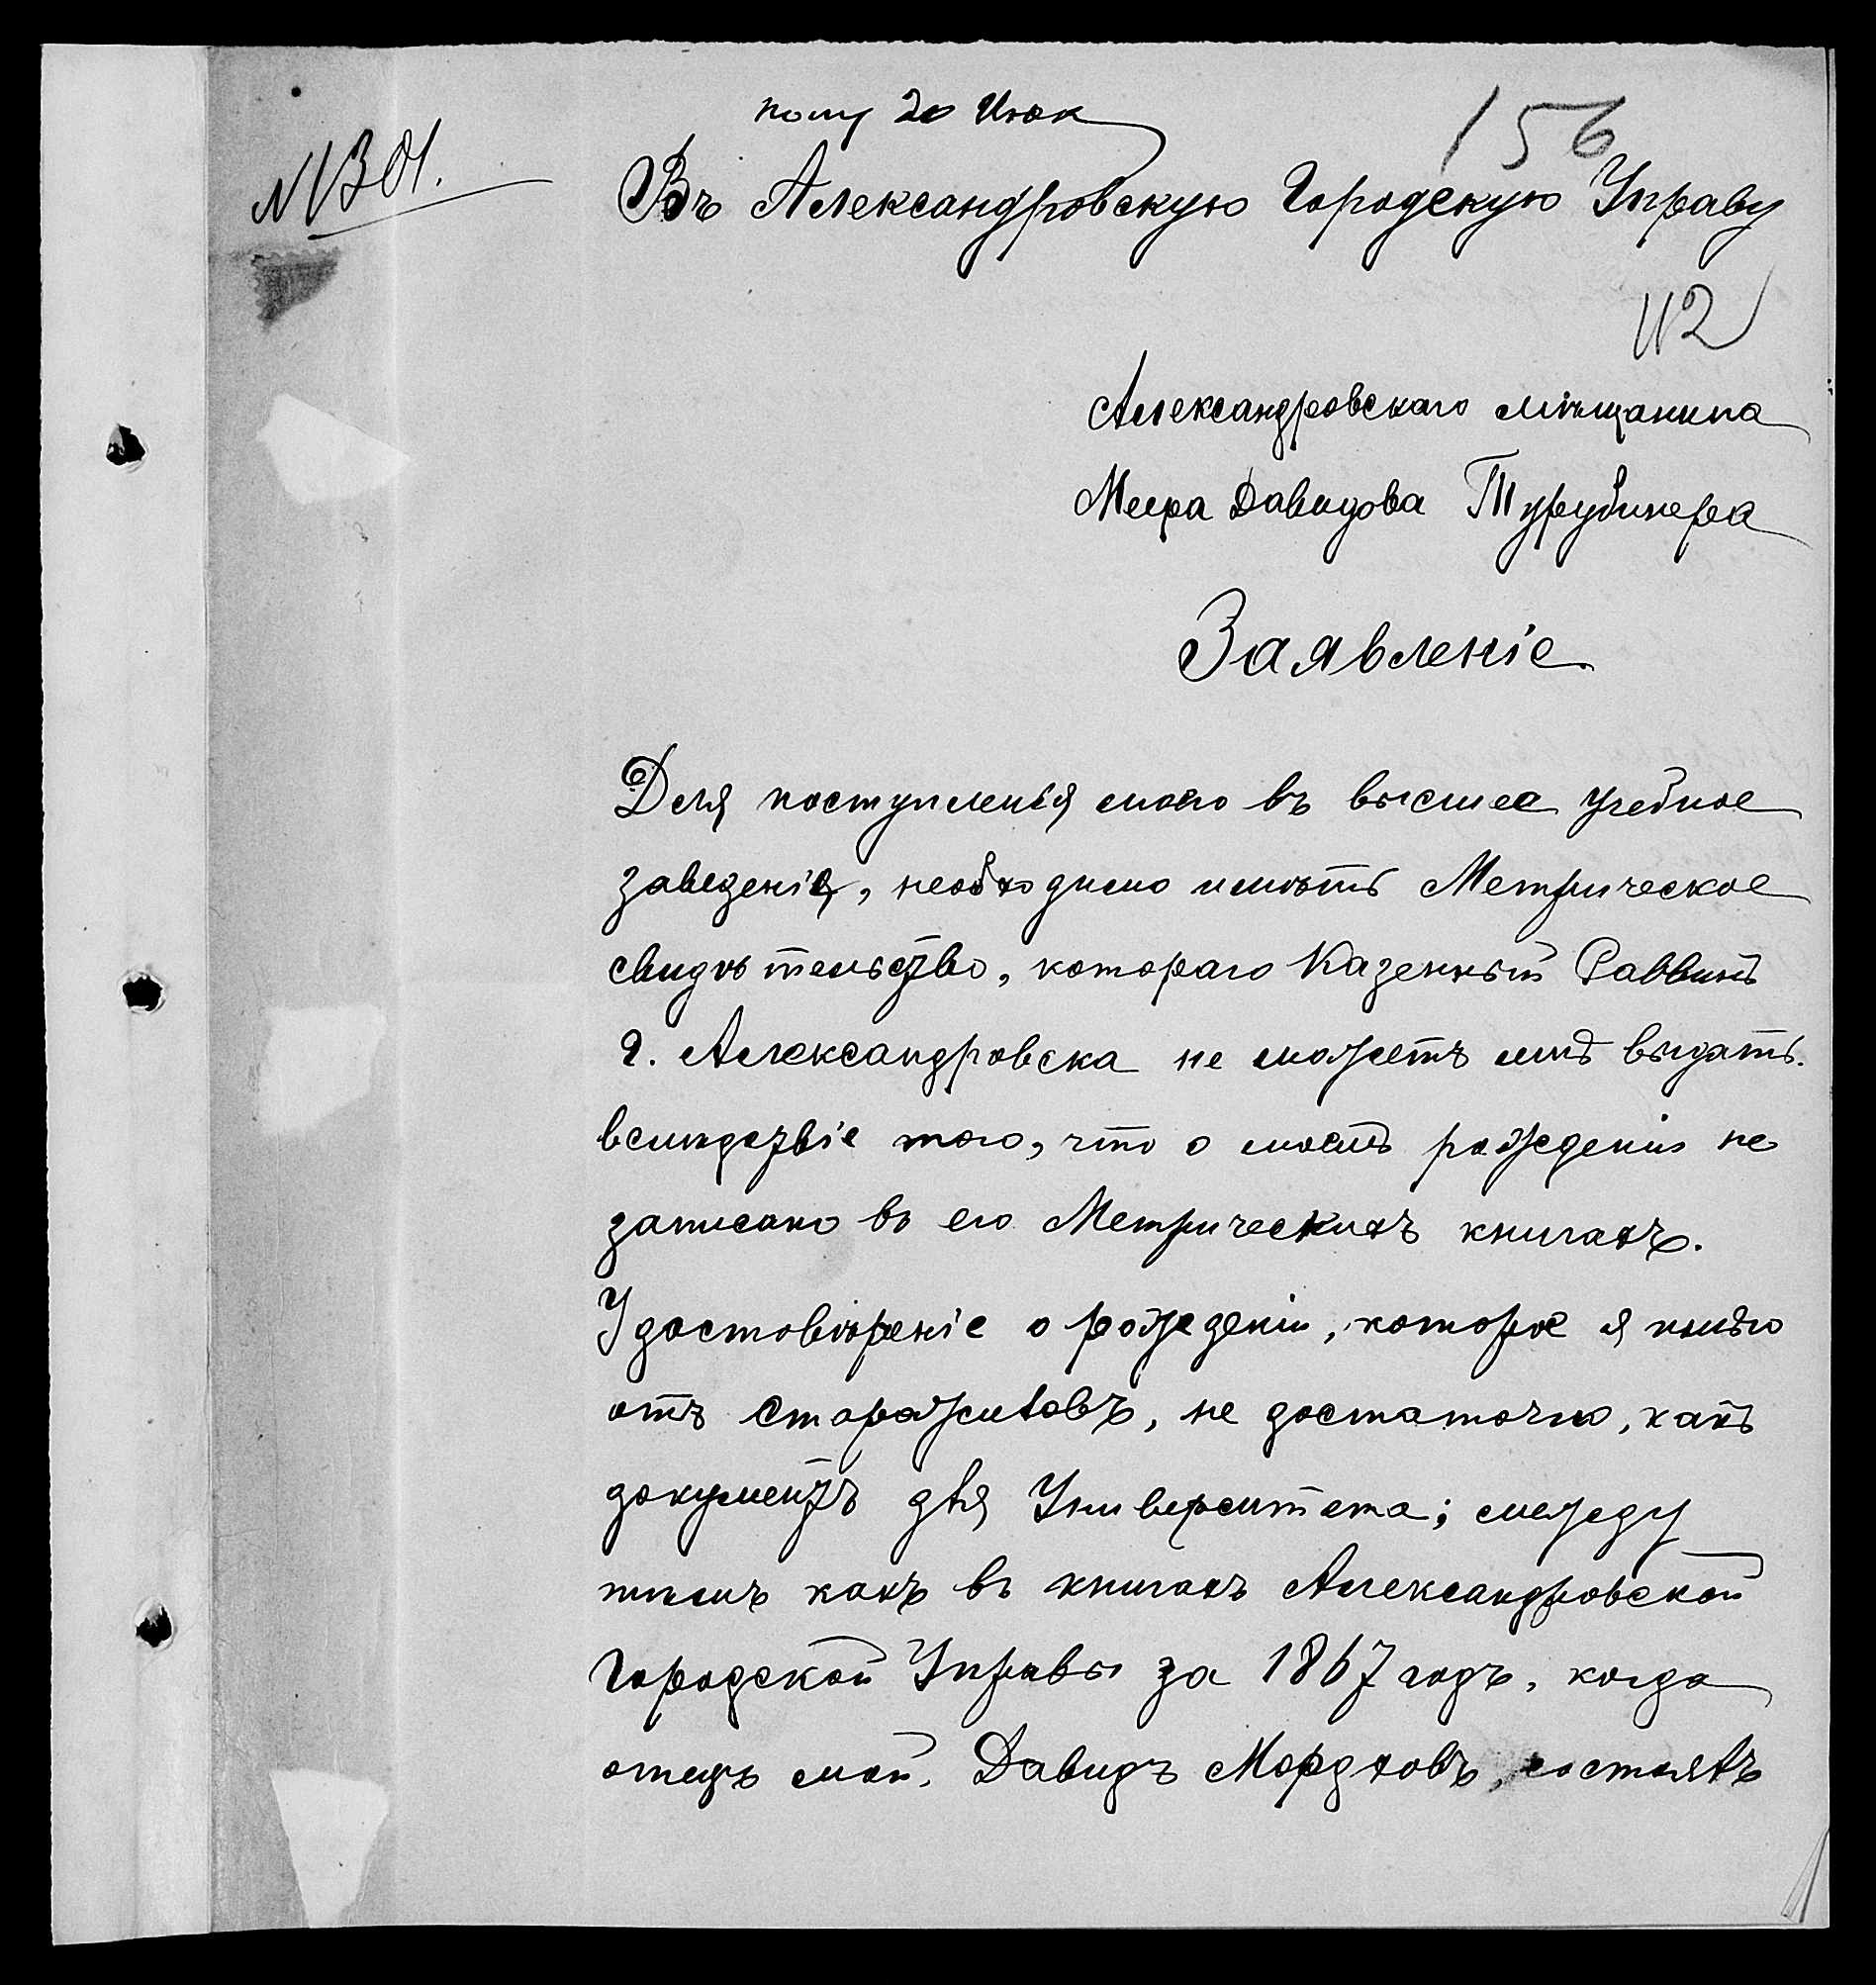 полу 20 Июл
156
№ 1301.
Въ Александровскую Городскую Управу
112
Александровскаго мѣщанина
Меера Давидова Турубинера
Заявленіе
Для поступленія моего въ высшее учебное
заведеніе, необходимо имѣть Метрическое
свидѣтельство, котораго Казенный Раввинъ
г. Александровска не можетъ мнѣ выдать.
вслѣдствіе того, что о моемъ рожденіи не
записано въ его Метрическихъ книгахъ.
Удостовѣреніе о рожденіи, которое я имѣю
отъ старожиловъ, не достаточно, какъ
документъ для Университета; между
тѣмъ какъ въ книгахъ Александровской
Городской Управы за 1867 годъ, когда
отецъ мой, Давидъ Мордховъ, состоялъ